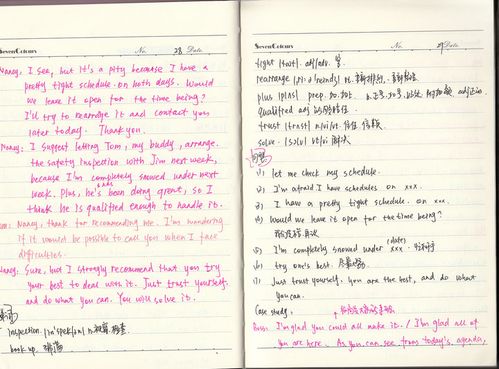 Seven Colours No. 28 Date
Nancy: I see, but it's a pity because I have a
pretty tight schedule on both days. Would
we leave it open for the time being?
I'll try to rearrange it and contact you
later today. Thank you.
Nancy: I suggest letting Tom, my buddy, arrange
the safety inspection with Jim next week,
because I'm completely snowed under next
week. Plus, he's been doing great, so I
think he is qualified enough to handle it.
Tom: Nancy, thank for recommending me. I'm wondering
if it would be possible to call you when I face
difficulties.
Nancy: Sure, but I strongly recommend that you try
your best to deal with it. Just trust yourself
and do what you can. You will solve it.
inspection
book up
Seven Colours No. 29 Date
tight adj/adv. 紧
rearrange vt. 重新排列
plus prep.
qualified adj
trust n/vi/vt. 信任
solve vt/vi 解决
(1) let me check my schedule.
(2) I'm afraid I have schedules on xxx.
(3) I have a pretty tight schedule on xxx.
(4) Would we leave it open for the time being?
(5) I'm completely snowed under xxx. (date)
(6) try one's best.
(7) Just trust yourself. you are the best, and do what
you can.
Case study.
Boss: I'm glad you could all make it. / I'm glad all of
you are here. As you can see from today's agenda,